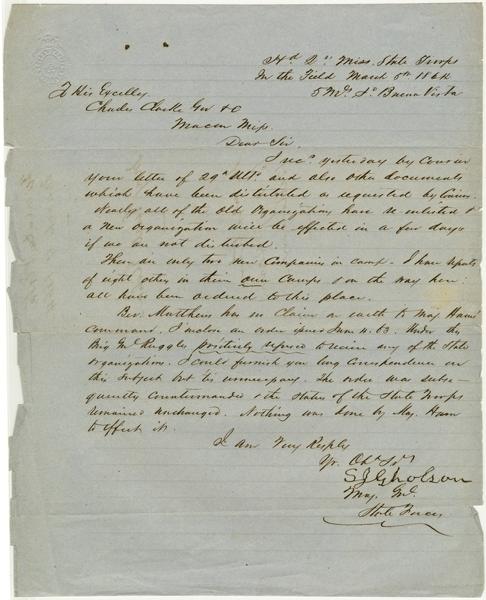 Hd Qrs Miss. State Troops
In the Field March 5th 1864
5 Ms So Buena Vista
To His Excellcy
Charles Clarke Gov &C
Macon Miss.
Dear Sir,
I recd yesterday by Courier
your letter of 29th Ulto and also other documents
which have been distributed as requested by
Nearly all of the Old Organizations have re enlisted &
a new organization will be effected in a few days
if we are not disturbed.
There are only two new Companies in camp. I have reports
of eight others in their own Camps & on the way here.
all have been ordered to this place.
Matthews has no Claim on earth to Maj Hams
command. an order Jan 4. 63. Under this
Brig Gnl Ruggles positively refused to receive any of the State
organizations. I could furnish you long Correspondence on
this subject but tis unnecessary. The order was subse-
quently Countermanded & the status of the State Troops
remained unchanged. Nothing was done by Maj. Ham
to effect it.
I Am Very Respty
Yr. Obt Svt
S J Gholson
Maj. Gnl.
State Forces